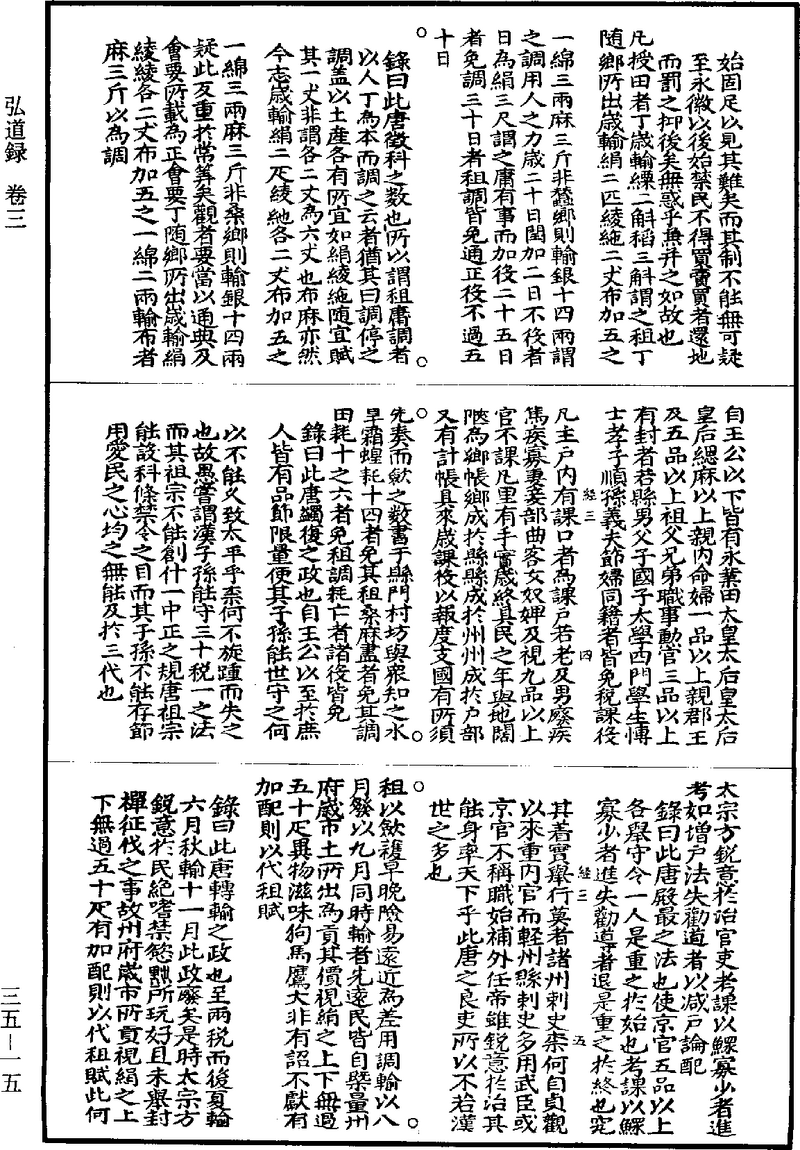 弘道録 卷三
始固足以見其難矣而其制不能無可疑
至永徽以後始禁民不得買賣買者還地
而罰之抑後矣無惑乎兼并之如故也
凡授田者丁歲輸粿二斛稻三斛謂之租丁
隨鄉所出歲輸絹二匹綾絁二丈布加五之
一綿三兩麻三斤非蠶鄉則輸銀十四兩謂
之調用人之力歲二十日閏加二日不役者
日為絹三尺謂之庸有事而加役二十五日
者免調三十日者租調皆免通正役不過五
十日
錄曰此唐徵科之數也所以謂租庸調者
以人丁為本而調之云者猶其曰調停之
調蓋以土產各有所宜如絹綾絁隨宜賦
其一丈非謂各二丈為六丈也布麻亦然
今志歲輸絹二疋綾絁各二丈布加五之
一綿三兩麻三斤非桑鄉則輸銀十四兩
疑此反重於常筭矣觀者要當以通典及
會要所載為正會要丁隨鄉所出歲輸絹
綾綾各二丈布加五之一綿二兩輸布者
麻三斤以為調
自王公以下皆有永業田太皇太后皇太后
皇后緦麻以上親內命婦一品以上親郡王
及五品以上祖父兄弟職事勳官三品以上
有封者若縣男父子國子太學四門學生慱
士孝子順孫義夫節婦同籍者皆免稅課役
凡主戶內有課口者為課戶若老及男廢疾
篤疾寡妻妾部曲客女奴婢及視九品以上
官不課凡里有手實歲終具民之年與地闊
陿為鄉帳鄉成於縣縣成於州州成於戶部
又有計帳具來歲課役以報度支國有所須
先奏而歛之數書于縣門村坊與衆知之水
旱霜蝗耗十四者免其租桑麻盡者免其調
田耗十之六者免租調耗亡者諸役皆免
錄曰此唐蠲復之政也自王公以至於庶
人皆有品節限量使其子孫能世守之何
以不能久致太平乎柰何不旋踵而失之
也故愚嘗謂漢子孫能守三十稅一之法
而其祖宗不能創什一中正之規唐祖宗
能設科條禁令之目而其子孫不能存節
用愛民之心均之無能及於三代也
太宗方銳意於治官吏考課以鰥寡少者進
考如增戶法失勸道者以减戶論配
錄曰此唐殿最之法也使京官五品以上
各舉守令一人是重之於始也考課以鰥
寡少者進失勸導者退是重之於終也究
其着實舉行莫者諸州刺史柰何自貞觀
以來重內官而輕州縣刺史多用武臣或
京官不稱職始補外任帝雖銳意於治其
能身率天下乎此唐之良吏所以不若漢
世之多也
租以歛穫早晚險易遠近為差用調輸以八
月發以九月同時輸者先遠民皆自槩量州
府歲市土所出為貢其價視絹之上下無過
五十疋異物滋味狗馬鷹犬非有詔不獻有
加配則以代租賦
錄曰此唐轉輸之政也至兩稅而後夏輸
六月秋輸十一月此政廢矣是時太宗方
銳意於民絕嗜禁慾黜所玩好且未舉封
禪征伐之事故州府歲市所貢視絹之上
下無過五十疋有加配則以代租賦此何
經三
四
經三
五
三五—一五